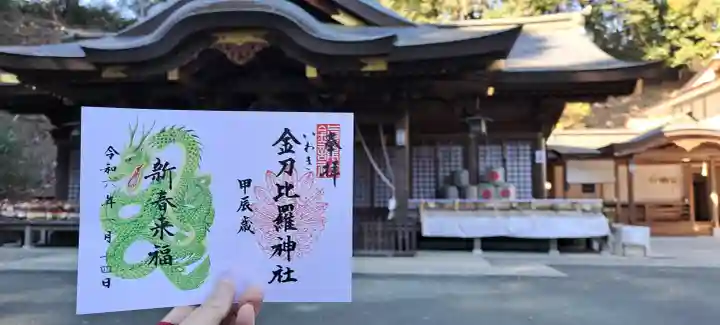 奉拝
いわき
金刀比羅神社
甲辰歳
新春来福
令和六年一月十四日